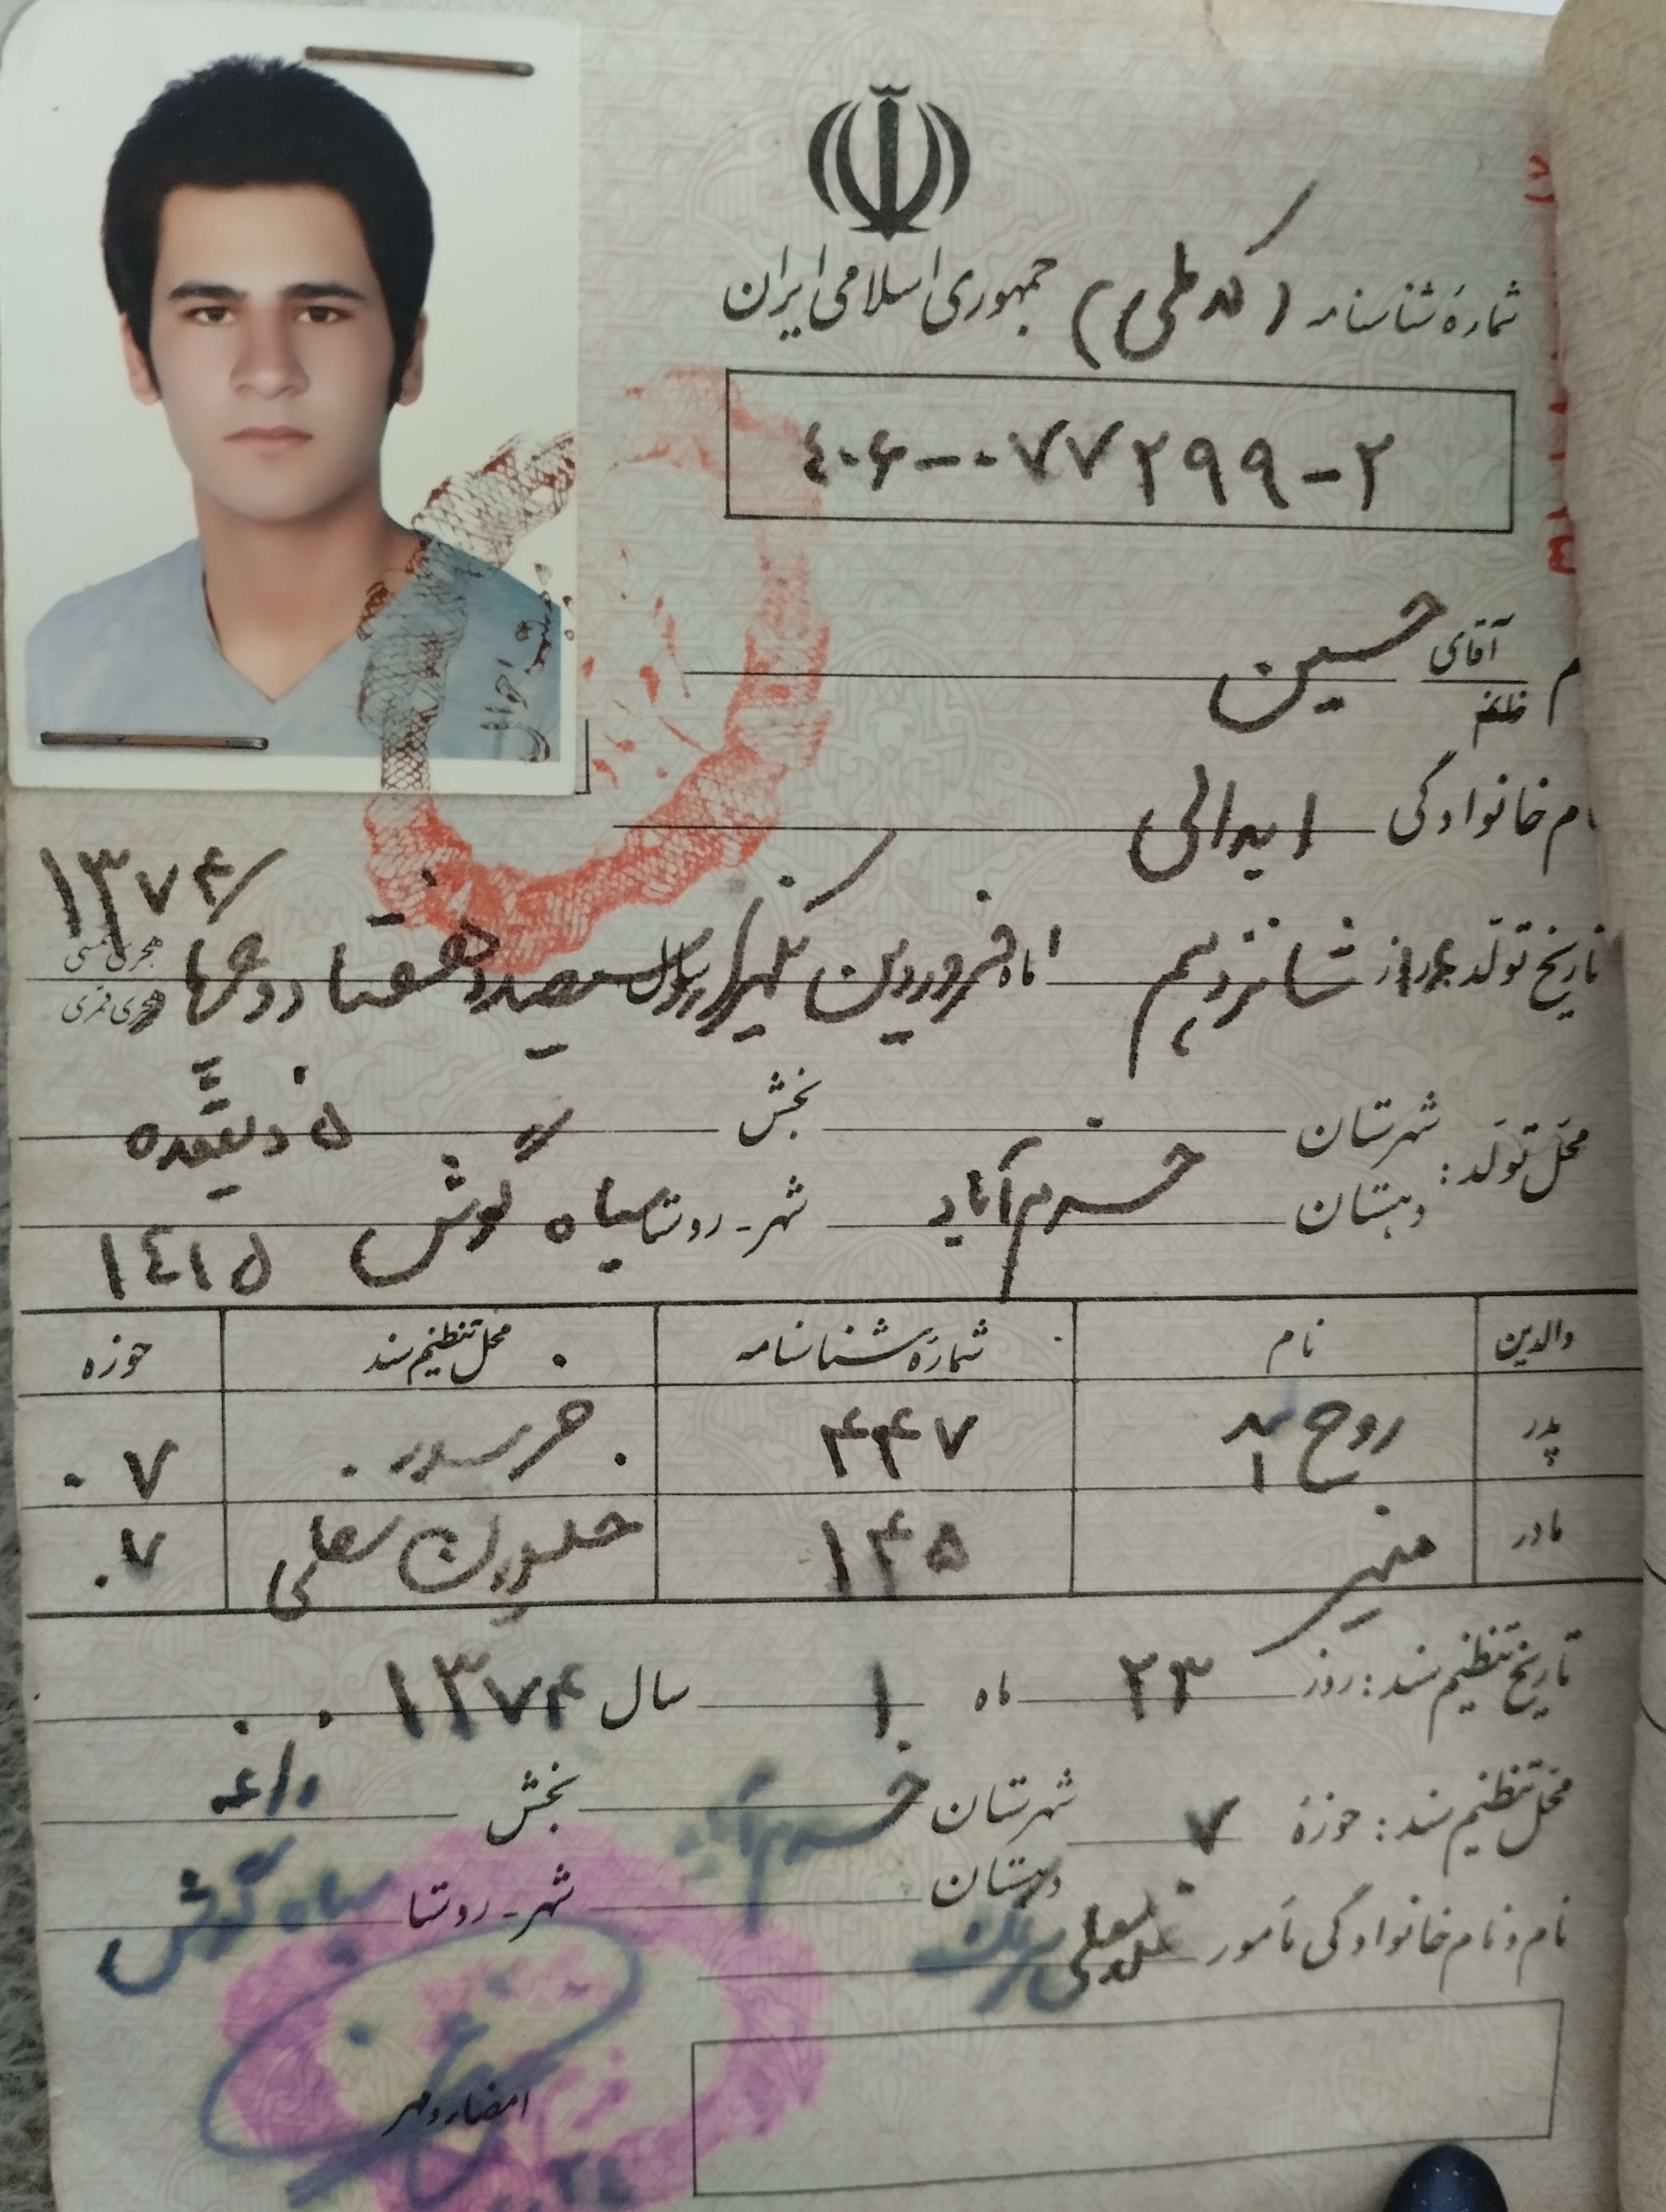 جمهوری اسلامی ایران
شمارهٔ شناسنامه (کد ملی)
۴۰۶-۰۷۷۲۹۹-۲
آقای حسین
خانم
نام خانوادگی ایدالی
۱۳۷۴
تاریخ تولد: روز ۱۶ شانزدهم ماه فروردین یکهزار سیصد و هفتاد و چهار
هجری شمسی
هجری قمری
محل تولد: شهرستان بخش ۵ ذیقعده
دهستان خرم‌آباد شهر - روستا سیاه گوش ۱۴۱۵
والدین نام شمارهٔ شناسنامه محل تنظیم سند حوزه
پدر روح اله ۴۴۷ ۷
مادر منیر ۱۴۵ سفلی ۷
تاریخ تنظیم سند: روز ۲۳ ماه ۱ سال ۱۳۷۴
محل تنظیم سند: حوزهٔ ۷ شهرستان خرم‌آباد بخش
دهستان شهر - روستا سیاه گوش
نام و نام خانوادگی مأمور
امضاء و مهر